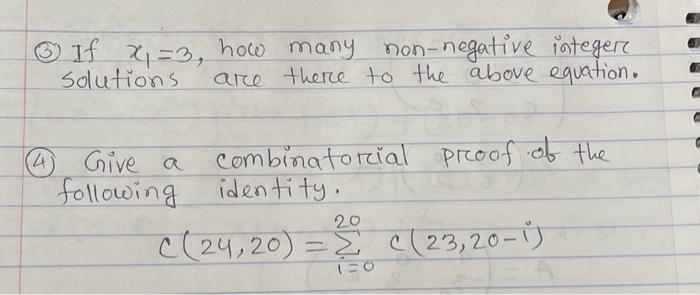 ③ If x₁=3, how many non-negative integer
solutions are there to the above equation.
④ Give a combinatorial proof of the
following identity.
C(24,20) = \sum_{i=0}^{20} C(23,20-i)